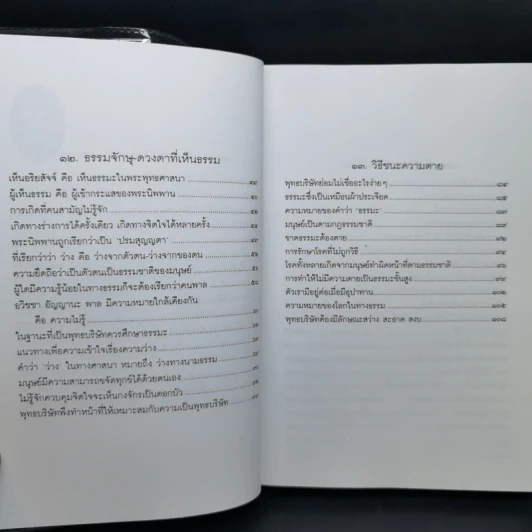 ๑๒. ธรรมจักษุ-ดวงตาที่เห็นธรรม
เห็นอริยสัจจ์ คือ เห็นธรรมะในพระพุทธศาสนา
ผู้เห็นธรรม คือ ผู้เข้ากระแสของพระนิพพาน
การเกิดที่คนสามัญไม่รู้จัก
เกิดทางร่างกายได้ครั้งเดียว เกิดทางจิตใจได้หลายครั้ง
พระนิพพานถูกเรียกว่าเป็น 'ปรมสุญญตา'
ที่เรียกว่าว่า ว่าง คือ ว่างจากตัวตน-ว่างจากของตน
ความยึดถือว่าเป็นตัวตนเป็นธรรมชาติของมนุษย์
ผู้ใดมีความรู้น้อยในทางธรรมก็จะต้องเรียกว่าคนพาล
อวิชชา อัญญาณะ พาล มีความหมายใกล้เคียงกัน
คือ ความไม่รู้
ในฐานะที่เป็นพุทธบริษัทควรศึกษาธรรมะ
แนวทางเพื่อความเข้าใจเรื่องความว่าง
คำว่า 'ว่าง' ในทางศาสนา หมายถึง ว่างทางนามธรรม
มนุษย์มีความสามารถขจัดทุกข์ได้ด้วยตนเอง
ไม่รู้จักควบคุมจิตใจจะเห็นกงจักรเป็นดอกบัว
พุทธบริษัทพึงทำหน้าที่ให้เหมาะสมกับความเป็นพุทธบริษัท
๑๓. วิธีชนะความตาย
พุทธบริษัทย่อมไม่เชื่ออะไรง่ายๆ
ธรรมะซึ่งเป็นเหมือนผ้าประเจียด
ความหมายของคำว่า 'ธรรมะ'
มนุษย์เป็นตามกฎธรรมชาติ
ขาดธรรมะต้องตาย
การรักษาโรคที่ไม่ถูกวิธี
โรคทั้งหลายเกิดจากมนุษย์ทำผิดหน้าที่ตามธรรมชาติ
การทำให้ไม่มีความตายเป็นธรรมะชั้นสูง
ตัวเรามีอยู่ต่อเมื่อมีอุปาทาน
ความหมายของโลกในทางธรรม ๑๐๕
พุทธบริษัทต้องมีลักษณะสว่าง สะอาด สงบ ๑๐๘